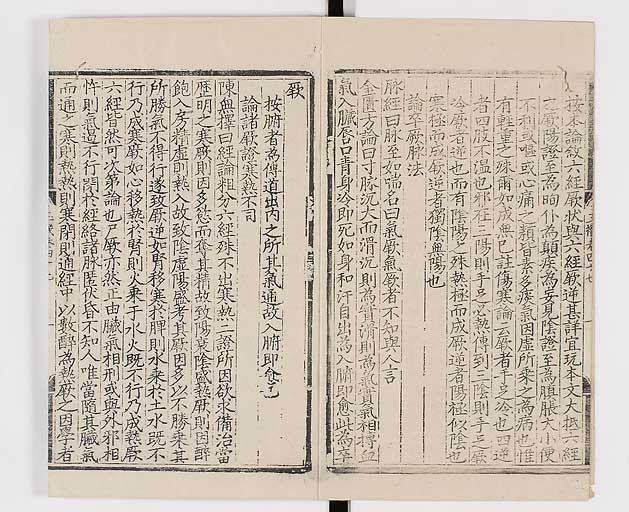 按本論叙六經厥狀與六經厥逆甚詳宜玩本文大抵六經
之厥陽證至為眴仆為顛疾為妄見陰證至為䐜脹大小便
不利或嘔或心痛之類皆素多疾氣因虛所乘之為病也惟
有輕重之殊爾如成無已註傷寒論云厥者手足冷也四逆
者四肢不溫也邪在三陽則手足必熱傳到三陰則手足厥
冷厥者逆也而有陰陽之殊熱極而成厥逆者陽極似陰也
寒極而成厥逆者獨陰無陽也
論卒厥脉法
脉經曰脉至如喘名曰氣厥氣厥者不知與人言
金匱方論曰寸脉沉大而滑沉則為實滑則為氣實氣相摶血
氣入臟唇口青身冷即死如身和汗自出為入腑即愈此為卒
厥
按腑者為傳道出內之所其氣通故入腑即愈
論諸厥證寒熱不同
陳無擇曰經論粗分六經殊不出寒熱二證所因欲求備治當
歷明之寒厥則因多慾而奪其精故致陽衰陰盛熱厥則因醉
飽入房精虛則熱入故致陰虛陽盛考其厥因多以不勝乘其
所勝氣不得行遂致厥逆如腎移寒於脾則水乘於土水既不
行乃成寒厥如心移熱於腎則火乘于水火既不行乃成熱厥
六經皆然可次第論也尸厥亦然正由臟氣相刑或與外邪相
忤則氣遏不行閉於經絡諸脉匿伏昏不知人唯當隨其臟氣
而通之寒則熱熱則寒閉則通經中以數醉為熱厥之因學者